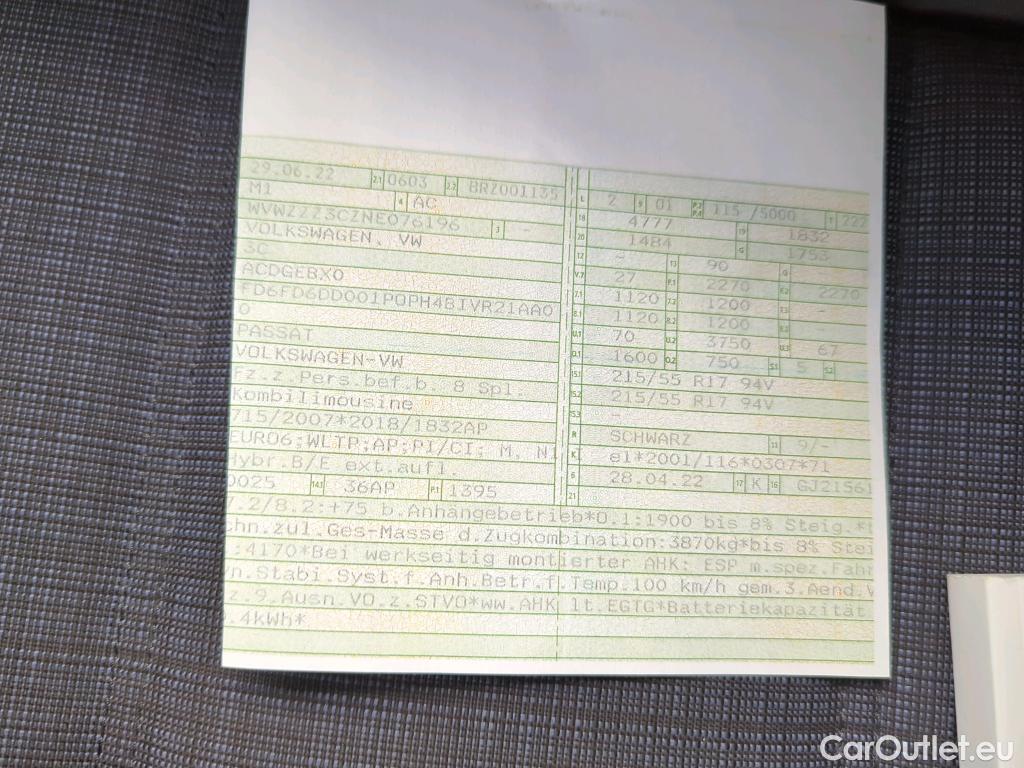 29.06.22 2.1 0603 2.2 BRZ001135 L 2 9 01 P.2 P.4 115 /5000 T 222
M1 4 AC 18 4777 19 1832
WVWZZZ3CZNE076196 3 - 20 1484 G 1753
VOLKSWAGEN, VW 12 - 13 90 Q -
3C V.7 27 F.1 2270 F.2 2270
ACDGEBX0 7.1 1120 7.2 1200 7.3 -
FD6FD6DD001P0PH4BIVR21AA0 8.1 1120 8.2 1200 8.3 -
0 U.1 70 U.2 3750 U.3 67
PASSAT O.1 1600 O.2 750 S.1 5 S.2
VOLKSWAGEN-VW 15.1 215/55 R17 94V
Fz.z.Pers.bef.b. 8 Spl. 15.2 215/55 R17 94V
Kombilimousine 15.3 -
715/2007*2018/1832AP R SCHWARZ 11 9/-
EURO6;WLTP;AP;PI/CI; M, N1 K e1*2001/116*0307*71
Hybr.B/E ext.aufl. 6 28.04.22 17 K 16 GJ21561
0025 14.1 36AP P.1 1395 21
7.2/8.2:+75 b.Anhängebetrieb*O.1:1900 bis 8% Steig.*
chn.zul.Ges-Masse d.Zugkombination:3870kg*bis 8% Stei
.:4170*Bei werkseitig montierter AHK: ESP m.spez.Fahr
yn.Stabi.Syst.f.Anh.Betr.f.Temp.100 km/h gem.3.Aend.V
z.9.Ausn.VO.z.STVO*ww.AHK lt.EGTG*Batteriekapazität
.4kWh*
CarOutlet.eu